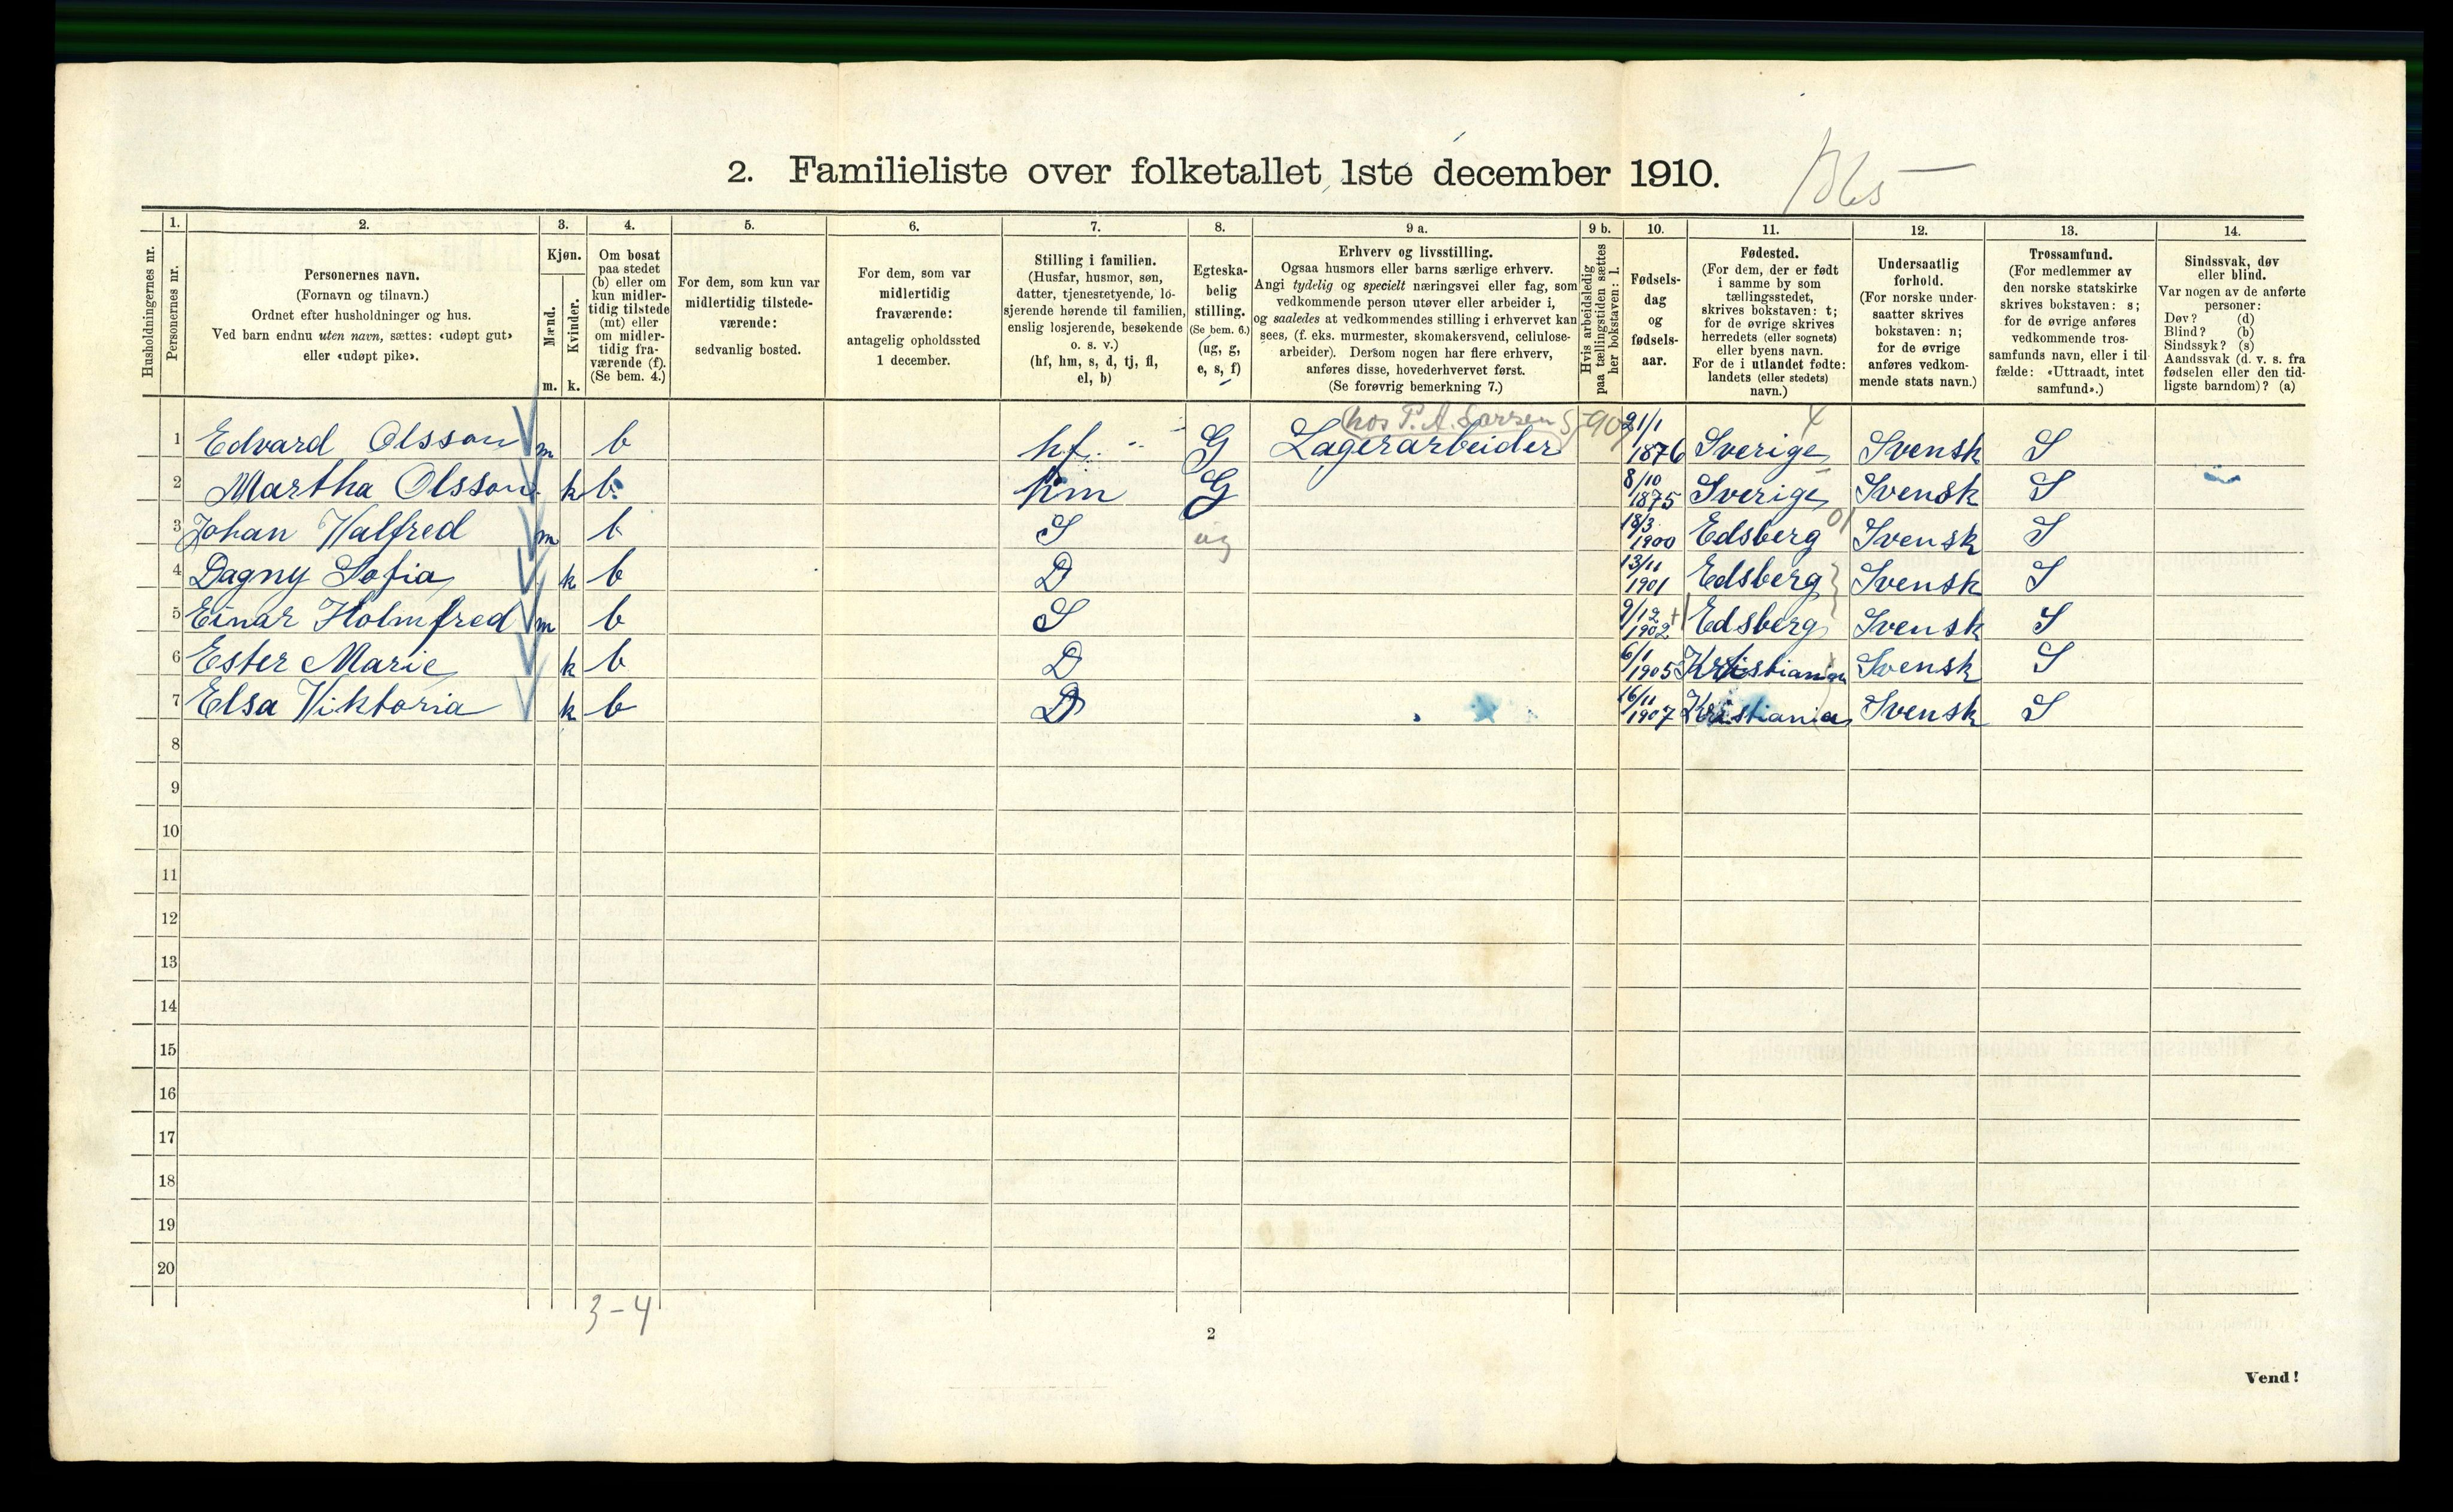 2. Familieliste over folketallet 1ste december 1910.
1. 2. 3. 4. 5. 6. 7. 8. 9 a. 9 b. 10. 11. 12. 13. 14.
Husholdningernes nr.
Personernes nr.
Personernes navn.
(Fornavn og tilnavn.)
Ordnet efter husholdninger og hus.
Ved barn endnu uten navn, sættes: «udøpt gut»
eller «udøpt pike».
Kjøn.
Mænd.
Kvinder.
m. k.
Om bosat
paa stedet
(b) eller om
kun midler-
tidig tilstede
(mt) eller
om midler-
tidig fra-
værende (f).
(Se bem. 4.)
For dem, som kun var
midlertidig tilstede-
værende:
sedvanlig bosted.
For dem, som var
midlertidig
fraværende:
antagelig opholdssted
1 december.
Stilling i familien.
(Husfar, husmor, søn,
datter, tjenestetyende, lo-
sjerende hørende til familien,
enslig losjerende, besøkende
o. s. v.)
(hf, hm, s, d, tj, fl,
el, b)
Egteska-
belig
stilling.
(Se bem. 6.)
(ug, g,
e, s, f)
Erhverv og livsstilling.
Ogsaa husmors eller barns særlige erhverv.
Angi tydelig og specielt næringsvei eller fag, som
vedkommende person utøver eller arbeider i,
og saaledes at vedkommendes stilling i erhvervet kan
sees, (f. eks. murmester, skomakersvend, cellulose-
arbeider). Dersom nogen har flere erhverv,
anføres disse, hovederhvervet først.
(Se forøvrig bemerkning 7.)
Hvis arbeidsledig
paa tællingstiden sættes
her bokstaven: l.
Fødsels-
dag
og
fødsels-
aar.
Fødested.
(For dem, der er født
i samme by som
tællingsstedet,
skrives bokstaven: t;
for de øvrige skrives
herredets (eller sognets)
eller byens navn.
For de i utlandet fødte:
landets (eller stedets)
navn.)
Undersaatlig
forhold.
(For norske under-
saatter skrives
bokstaven: n;
for de øvrige
anføres vedkom-
mende stats navn.)
Trossamfund.
(For medlemmer av
den norske statskirke
skrives bokstaven: s;
for de øvrige anføres
vedkommende tros-
samfunds navn, eller i til-
fælde: «Uttraadt, intet
samfund».)
Sindssvak, døv
eller blind.
Var nogen av de anførte
personer:
Døv? (d)
Blind? (b)
Sindssyk? (s)
Aandssvak (d. v. s. fra
fødselen eller den tid-
ligste barndom)? (a)
hos P. A. Larsen
1 Edvard Olsson m b hf. G Lagerarbeider 21/1 1876 Sverige Svensk S
2 Martha Olsson k b. hm G 8/10 1875 Sverige Svensk S
3 Johan Halfred m b S ug 18/3 1900 Edsberg Svensk S
4 Dagny Sofia k b D 13/11 1901 Edsberg Svensk S
5 Einar Holmfred m b S 9/12 1902 Edsberg Svensk S
6 Ester Marie k b D 6/1 1905 Kristiania Svensk S
7 Elsa Viktoria k b D 16/11 1907 Kristiania Svensk S
8
9
10
11
12
13
14
15
16
17
18
19
20
3-4
2
Vend!